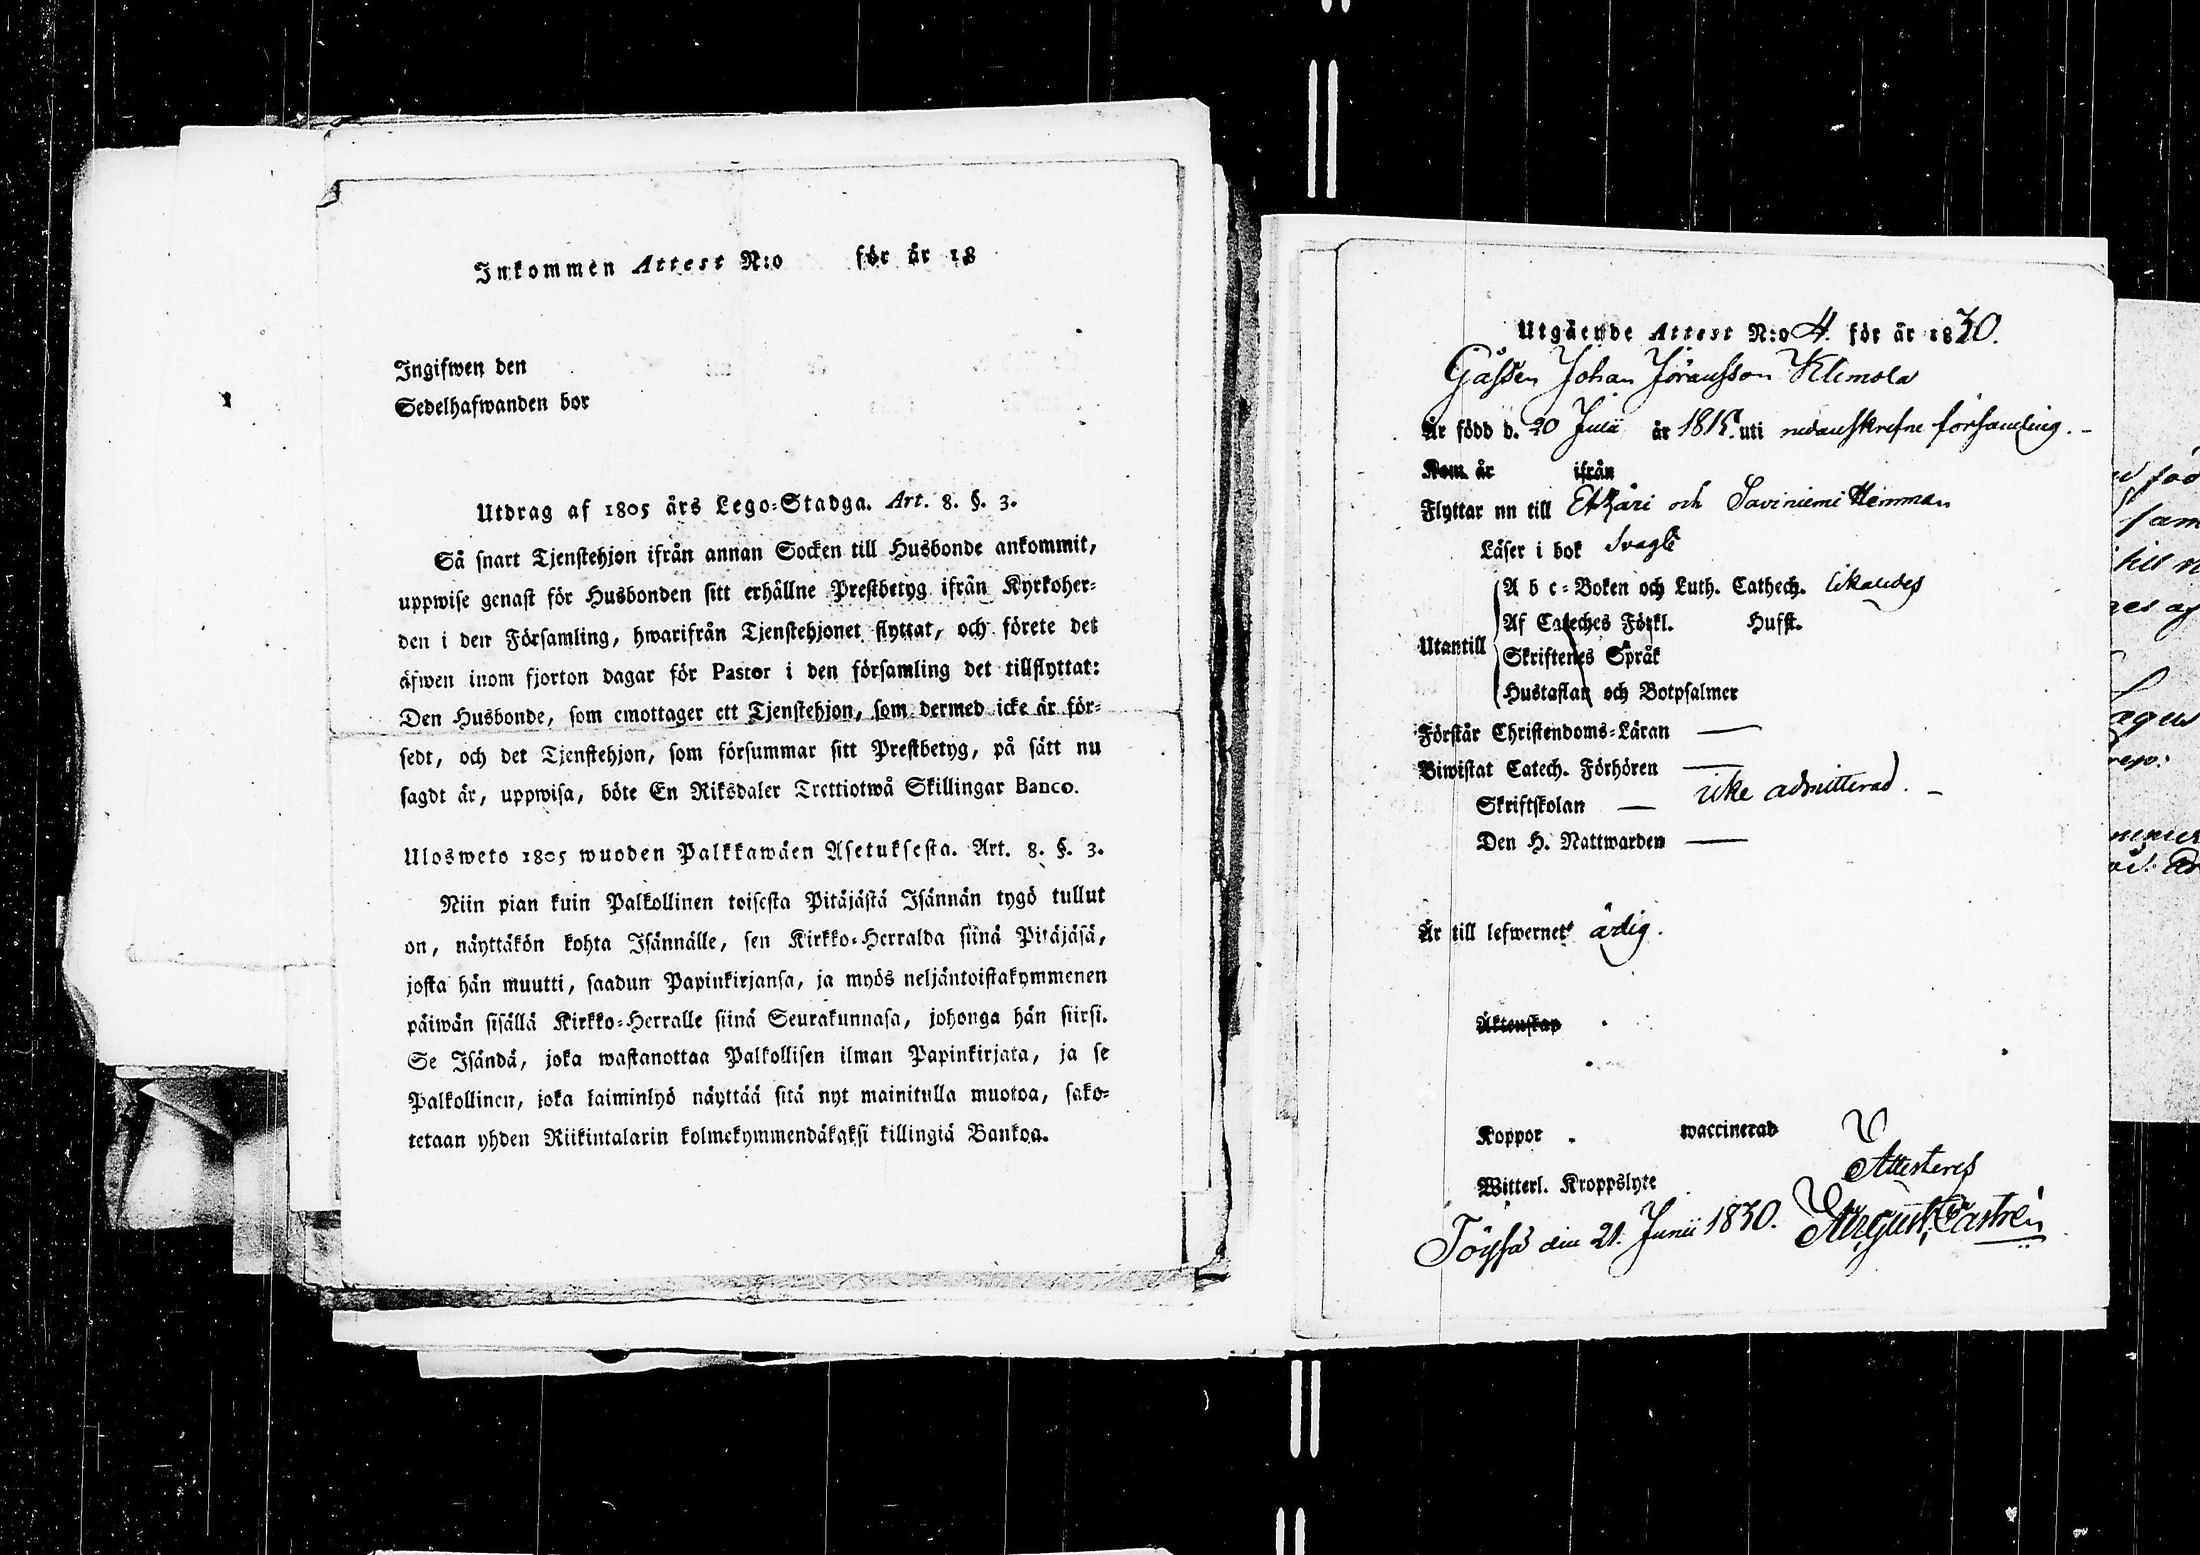 Inkommen Attest N:o för år 18
Ingifwen den
Sedelhafwanden bor
Utdrag af 1805 års Lego-Stadga. Art. 8. §. 3.
Så snart Tjenstehjon ifrån annan Socken till Husbonde ankommit,
uppwise genast för Husbonden sitt erhållne Prestbetyg ifrån Kyrkoher-
den i den Församling, hwarifrån Tjenstehjonet flyttat, och förete det
äfwen inom fjorton dagar för Pastor i den församling det tillflyttat:
Den Husbonde, som emottager ett Tjenstehjon, som dermed icke är för-
sedt, och det Tjenstehjon, som försummar sitt Prestbetyg, på sätt nu
sagdt är, uppwisa, böte En Riksdaler Trettiotwå Skillingar Banco.
Ulosweto 1805 wuoden Palkkawäen Asetuksesta. Art. 8. §. 3.
Niin pian kuin Palkollinen toisesta Pitäjästä Isännän tygö tullut
on, näyttäkön kohta Isännälle, sen Kirkko-Herralda siinä Pitäjäsä,
josta hän muutti, saadun Papinkirjansa, ja myös neljäntoistakymmenen
päiwän sisällä Kirkko-Herralle siinä Seurakunnasa, johonga hän siirsi.
Se Isändä, joka wastanottaa Palkollisen ilman Papinkirjata, ja se
Palkollinen, joka laiminlyö näyttää sitä nyt mainitulla muotoa, sako-
tetaan yhden Riikintalarin kolmekymmendäkaksi killingiä Bankoa.
Utgående Attest N:o 4. för år 1830.
Gåssen Johan Jöransson Klemola
Är född d. 20 Julii år 1815. uti nedanskrefne församling.
Kom år ifrån
Flyttar nu till Etzäri och Saviniemi Hemman
Läser i bok svagt
Utantill
A b c-Boken och Luth. Cathech. likaledes
Af Cateches Förkl. Husst.
Skriftenes Språk
Hustaflan och Botpsalmer
Förstår Christendoms-Läran —
Biwistat Catech. Förhören —
Skriftskolan — icke admitterad. —
Den H. Nattwarden —
Är till lefwernet ärlig.
Äktenskap
Koppor . waccinerad
Witterl. Kroppslyte
Attesteres
Töysä den 21. Junii 1830. August Castrén